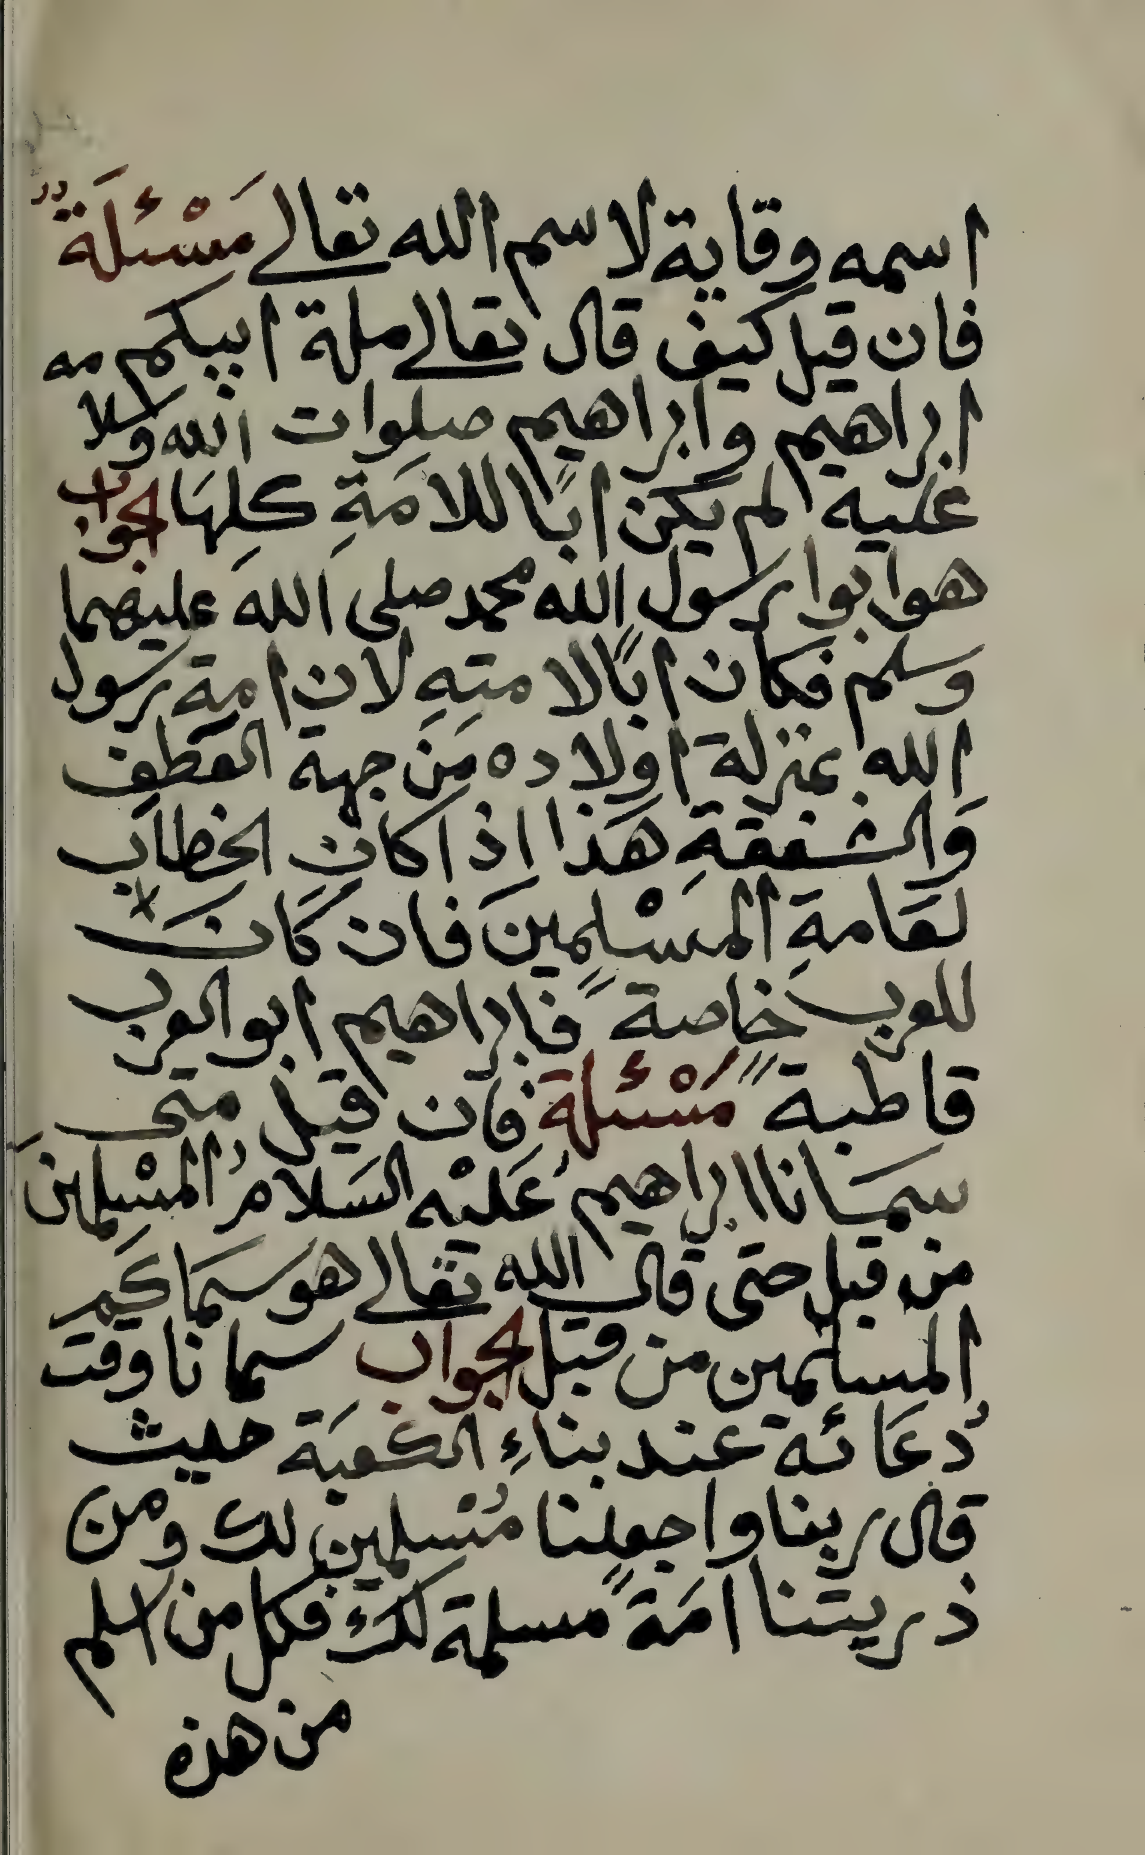 اسمه وقاية لاسم الله تعالى مَسْئلَةٌ
فان قيل كيف قال تعالى ملة ابيكم
ابراهيم وابراهيم صلوات الله وسلامه
عليه لم يكن ابًا للامَةِ كلِهَا الجواب
هو ابو رسول الله محمد صلى الله عليهما
وسلم فكان ابًا لامتهِ لان امة رسول
الله بمنزلة اولاده مِنَ جهة العطف
وَالشفقةِ هَذا اذا كان الخطاب
لعَامةِ المسْلِمينَ فان كَانَ
للعرب خاصةً فابراهيم ابو العرب
قاطبةً مَسْئلة فان قيل متى
سمَانا ابراهيمُ عَليْه السَلامُ المسْلمينَ
من قبل حتى قال الله تعالى هو سماكم
المسلمين من قبل الجواب سمانا وقت
دُعَائه عند بناءِ الكعبَة حيث
قال ربنا واجعلنا مُسْلمين لك ومن
ذريتنا امَةً مسلمة لك فكل من اسلم
من هذه